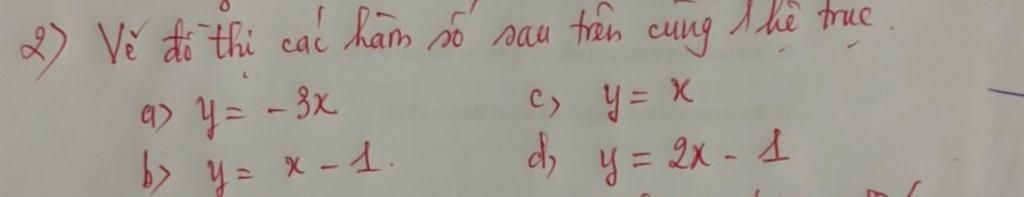 2) Vẽ đồ thị các hàm số sau trên cùng 1 hệ trục.
a) y = - 3x c) y = x
b) y = x - 1. d) y = 2x - 1